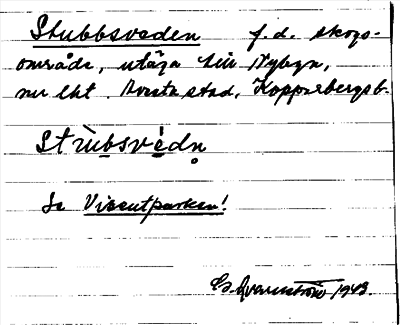 Stubbsveden f.d. skogs-
område, utäga till Nybyn,
nu lht. Avesta stad, Kopparbergs l.
Stùbsvédn
Se Visentparken!
G. Qvarnström 1943.